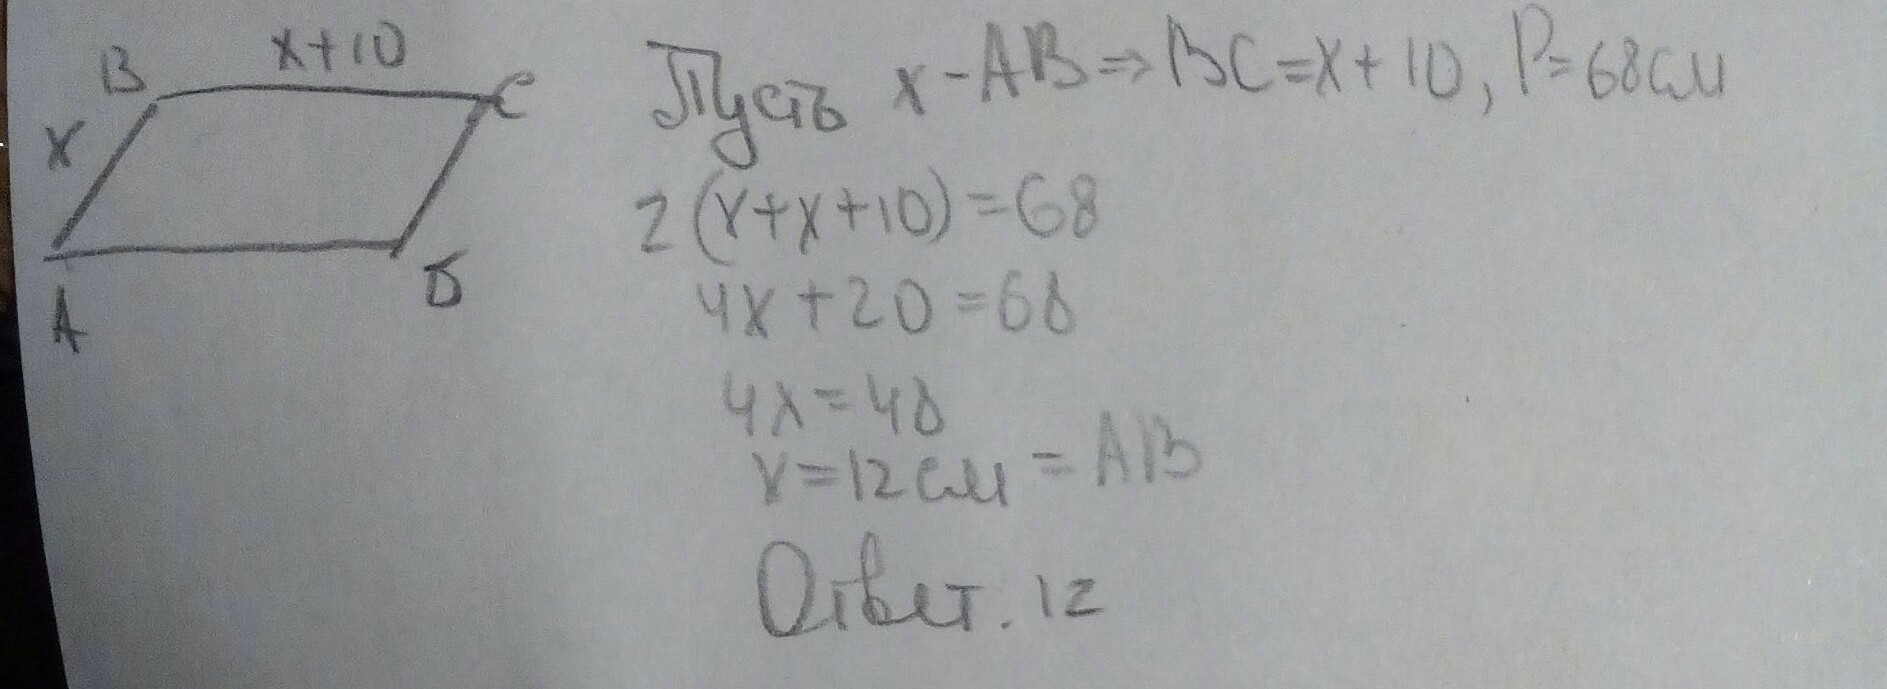 x+10
B
C
x
A
D
Пусть x - AB => BC = x + 10, P = 68 см
2(x+x+10)=68
4x+20=68
4x=48
x=12 см = AB
Ответ. 12